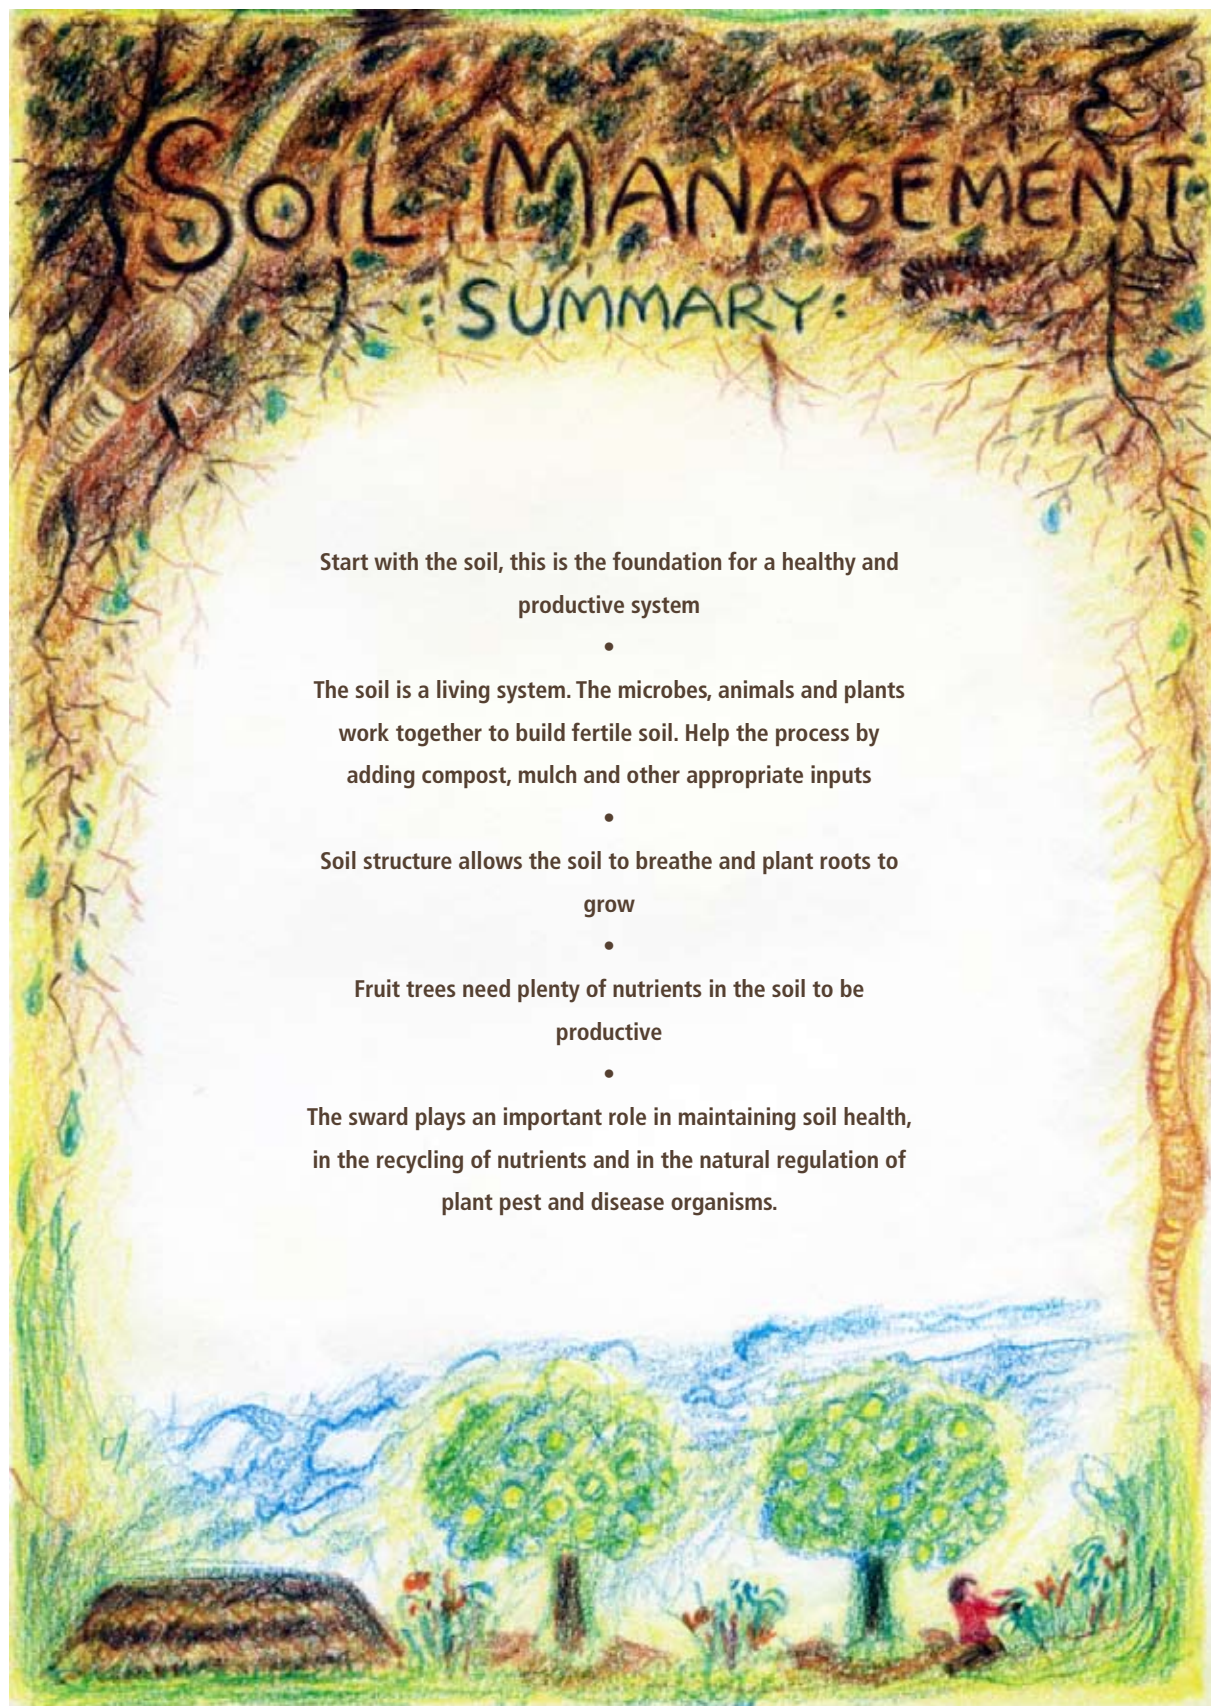 SOIL MANAGEMENT
: SUMMARY :
Start with the soil, this is the foundation for a healthy and
productive system
•
The soil is a living system. The microbes, animals and plants
work together to build fertile soil. Help the process by
adding compost, mulch and other appropriate inputs
•
Soil structure allows the soil to breathe and plant roots to
grow
•
Fruit trees need plenty of nutrients in the soil to be
productive
•
The sward plays an important role in maintaining soil health,
in the recycling of nutrients and in the natural regulation of
plant pest and disease organisms.